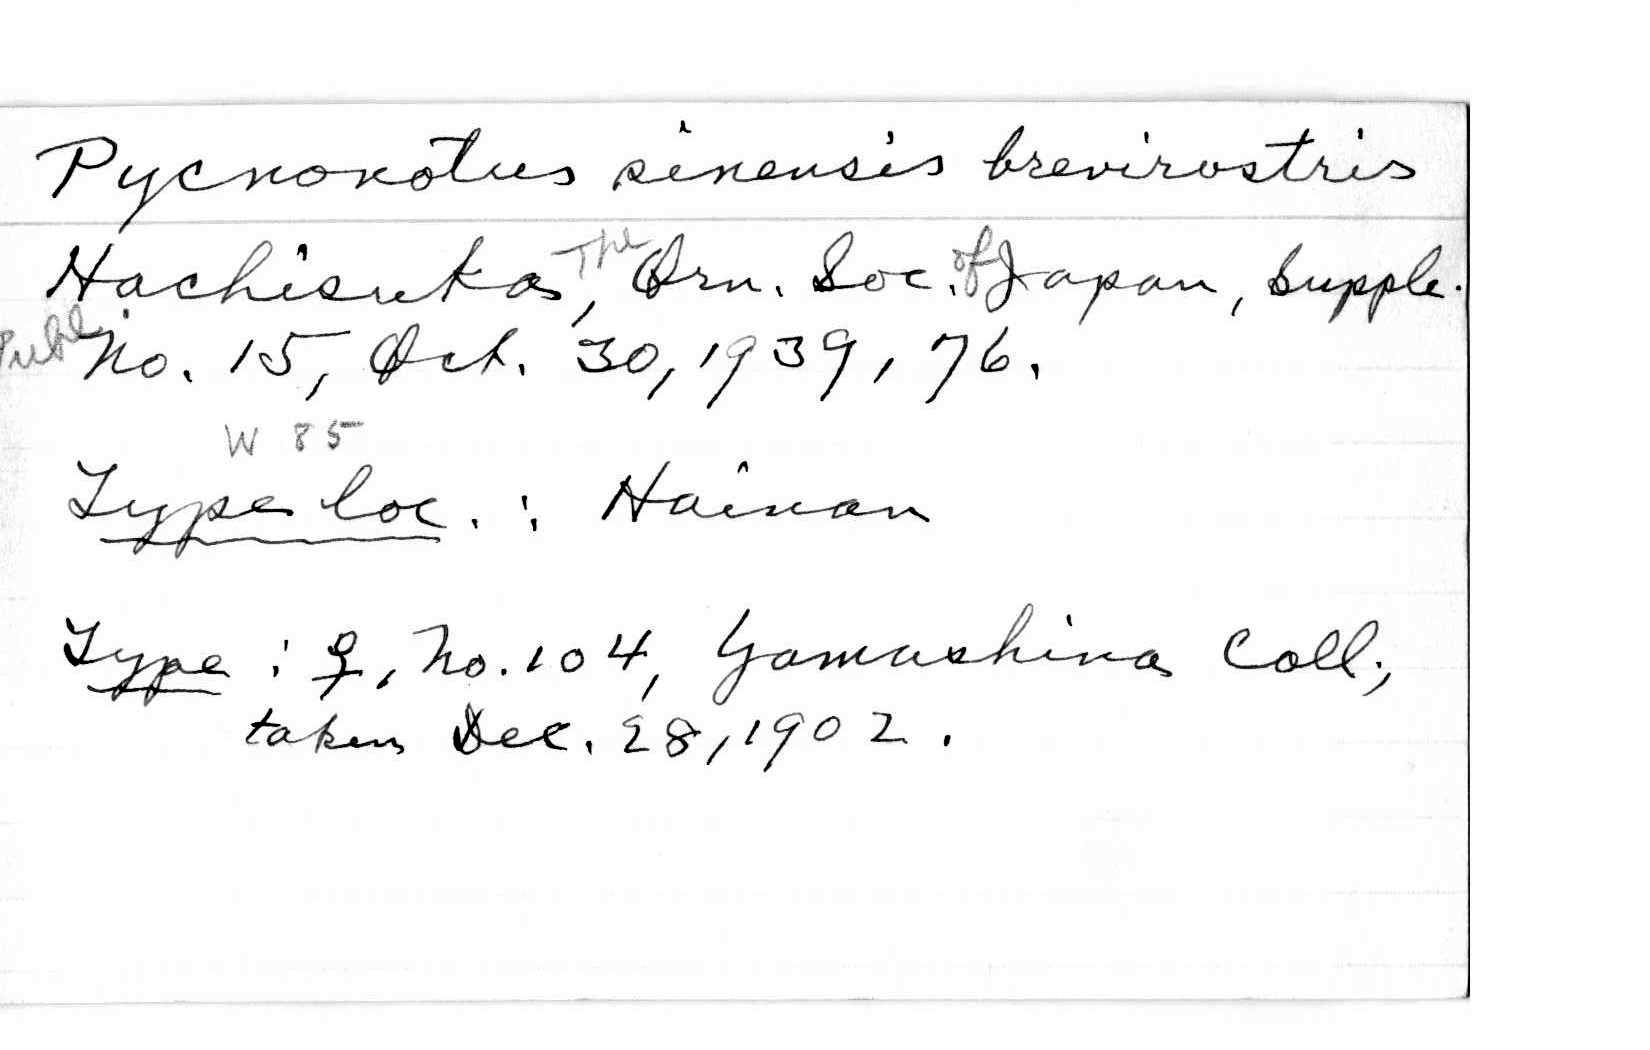 Pycnonotus sinensis brevirostris
Hachisuka, The Orn. Soc. of Japan, Supple.
Publ. No. 15, Oct. 30, 1939, 76.
W 85
Type loc. : Hainan
Type : ♀, No. 104, Yamashina Coll;
taken Dec. 28, 1902.